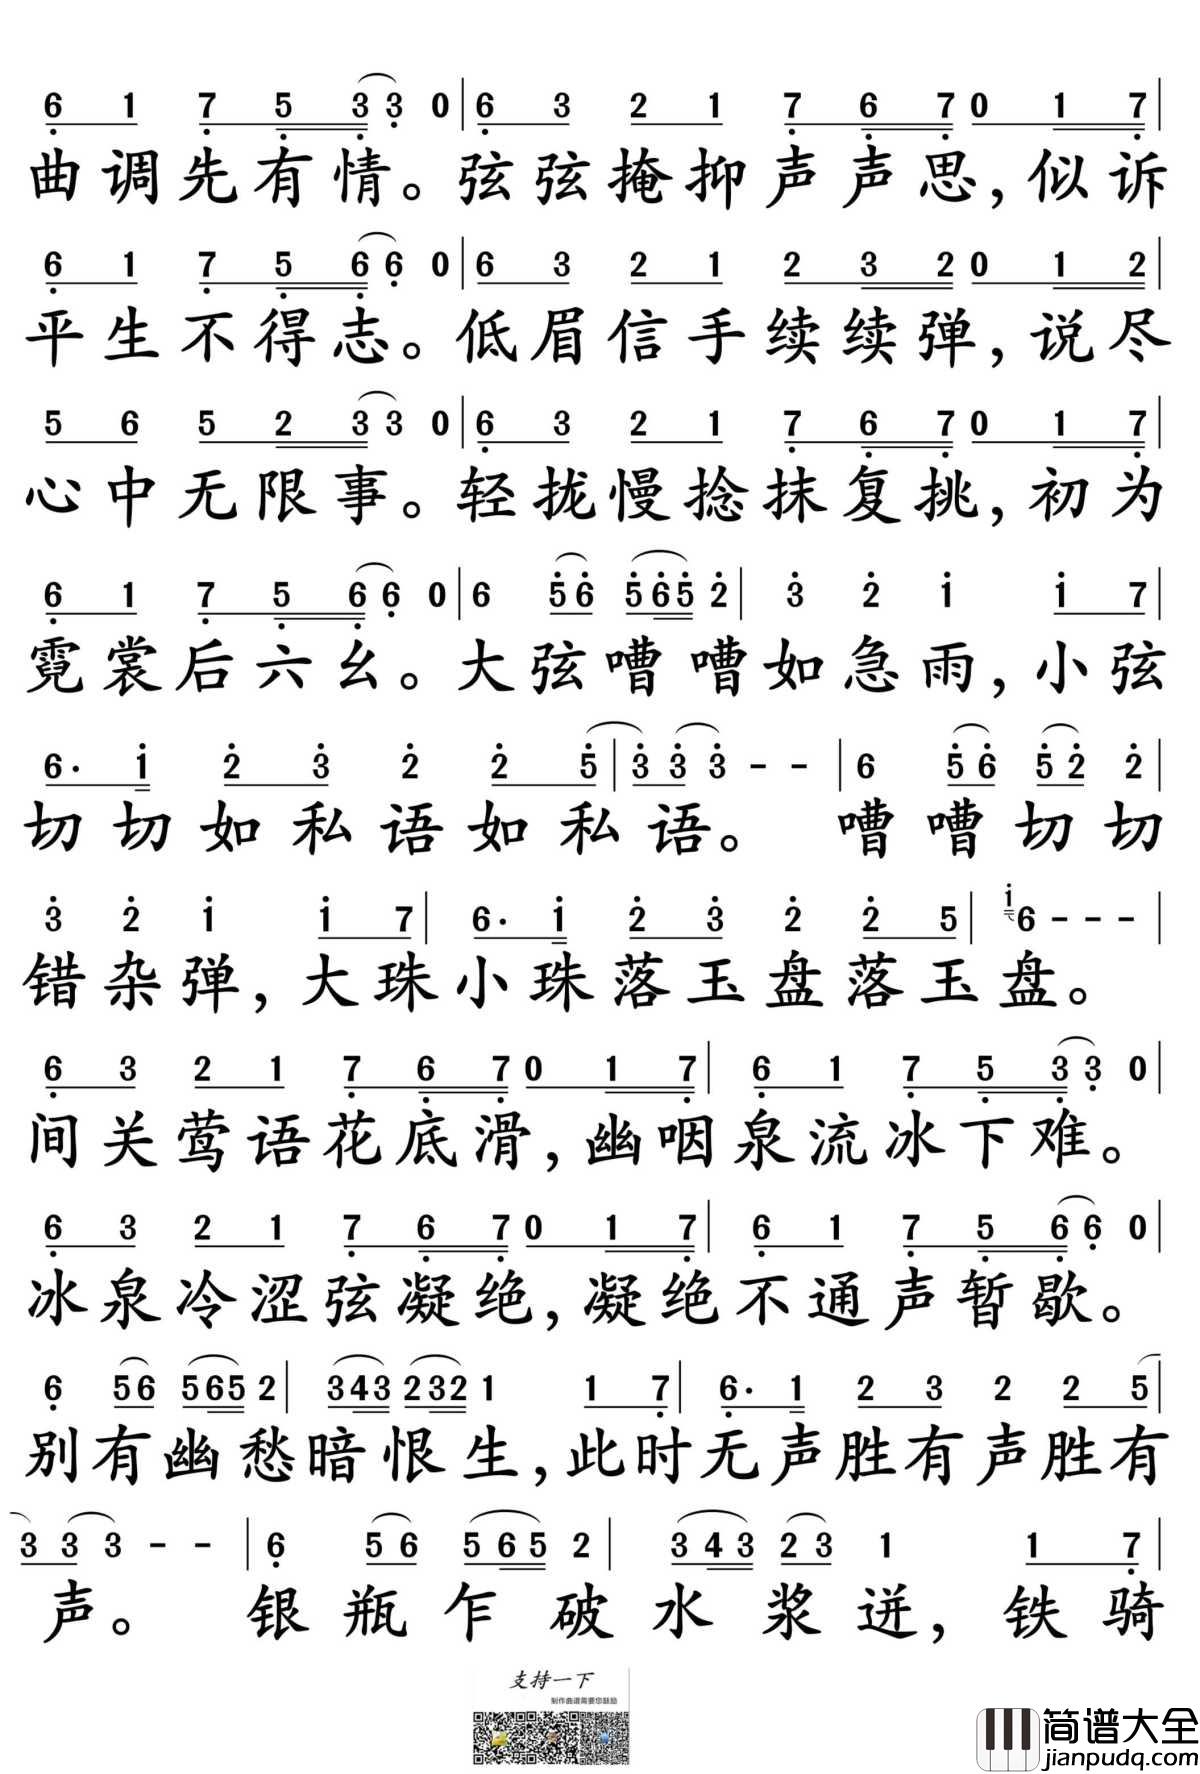 6 1 7 5 3 3 0 | 6 3 2 1 7 6 7 0 1 7 |
曲调先有情。弦弦掩抑声声思,似诉
6 1 7 5 6 6 0 | 6 3 2 1 2 3 2 0 1 2 |
平生不得志。低眉信手续续弹,说尽
5 6 5 2 3 3 0 | 6 3 2 1 7 6 7 0 1 7 |
心中无限事。轻拢慢捻抹复挑,初为
6 1 7 5 6 6 0 | 6 5 6 5 6 5 2 | 3 2 1 1 7 |
霓裳后六幺。大弦嘈嘈如急雨,小弦
6· 1 2 3 2 2 5 | 3 3 3 - - | 6 5 6 5 2 2 |
切切如私语如私语。嘈嘈切切
3 2 1 1 7 | 6· 1 2 3 2 2 5 | 1 6 - - - |
错杂弹,大珠小珠落玉盘落玉盘。
6 3 2 1 7 6 7 0 1 7 | 6 1 7 5 3 3 0 |
间关莺语花底滑,幽咽泉流冰下难。
6 3 2 1 7 6 7 0 1 7 | 6 1 7 5 6 6 0 |
冰泉冷涩弦凝绝,凝绝不通声暂歇。
6 5 6 5 6 5 2 | 3 4 3 2 3 2 1 1 7 | 6· 1 2 3 2 2 5 |
别有幽愁暗恨生,此时无声胜有声胜有
3 3 3 - - | 6 5 6 5 6 5 2 | 3 4 3 2 3 1 1 7 |
声。银瓶乍破水浆迸,铁骑
支持一下
制作曲谱需要您鼓励
简谱大全
jianpudq.com